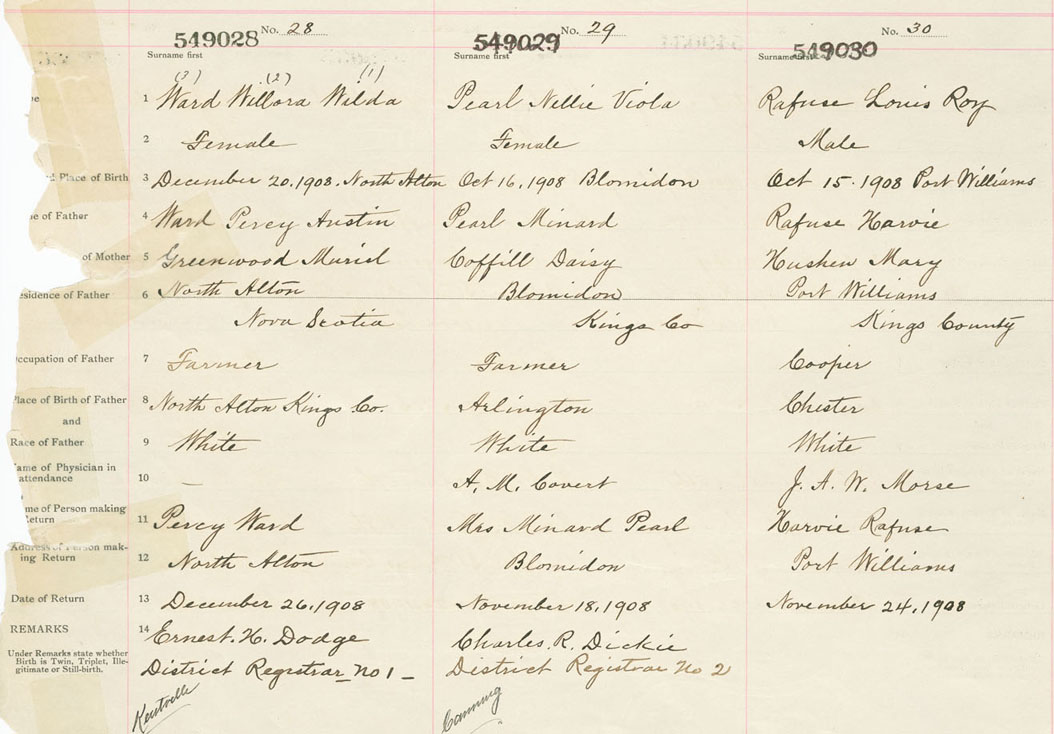 No. 28 No. 29 No. 30
549028 549029 549030
Surname first Surname first Surname first
(3) (2) (1)
1 Ward Willora Wilda Pearl Nellie Viola Rafuse Louis Roy
2 Female Female Male
Place of Birth 3 December 20, 1908. North Alton Oct 16, 1908 Blomidon Oct 15. 1908 Port Williams
of Father 4 Ward Percy Austin Pearl Minard Rafuse Harvie
of Mother 5 Greenwood Muriel Coffill Daisy Mary
esidence of Father 6 North Alton Blomidon Port Williams
Nova Scotia Kings Co Kings County
ccupation of Father 7 Farmer Farmer Cooper
Place of Birth of Father 8 North Alton Kings Co. Arlington Chester
and
Race of Father 9 White White White
ame of Physician in
attendance 10 — A. M. Covert J. A. W. Morse
me of Person making
Return 11 Percy Ward Mrs Minard Pearl Harvie Rafuse
Address of Person mak-
ing Return 12 North Alton Blomidon Port Williams
Date of Return 13 December 26, 1908 November 18, 1908 November 24, 1908
REMARKS 14 Ernest. H. Dodge Charles. R. Dickie
Under Remarks state whether
Birth is Twin, Triplet, Ille-
gitimate or Still-birth.
District Registrar No 1 — District Registrar No 2
Kentville Canning